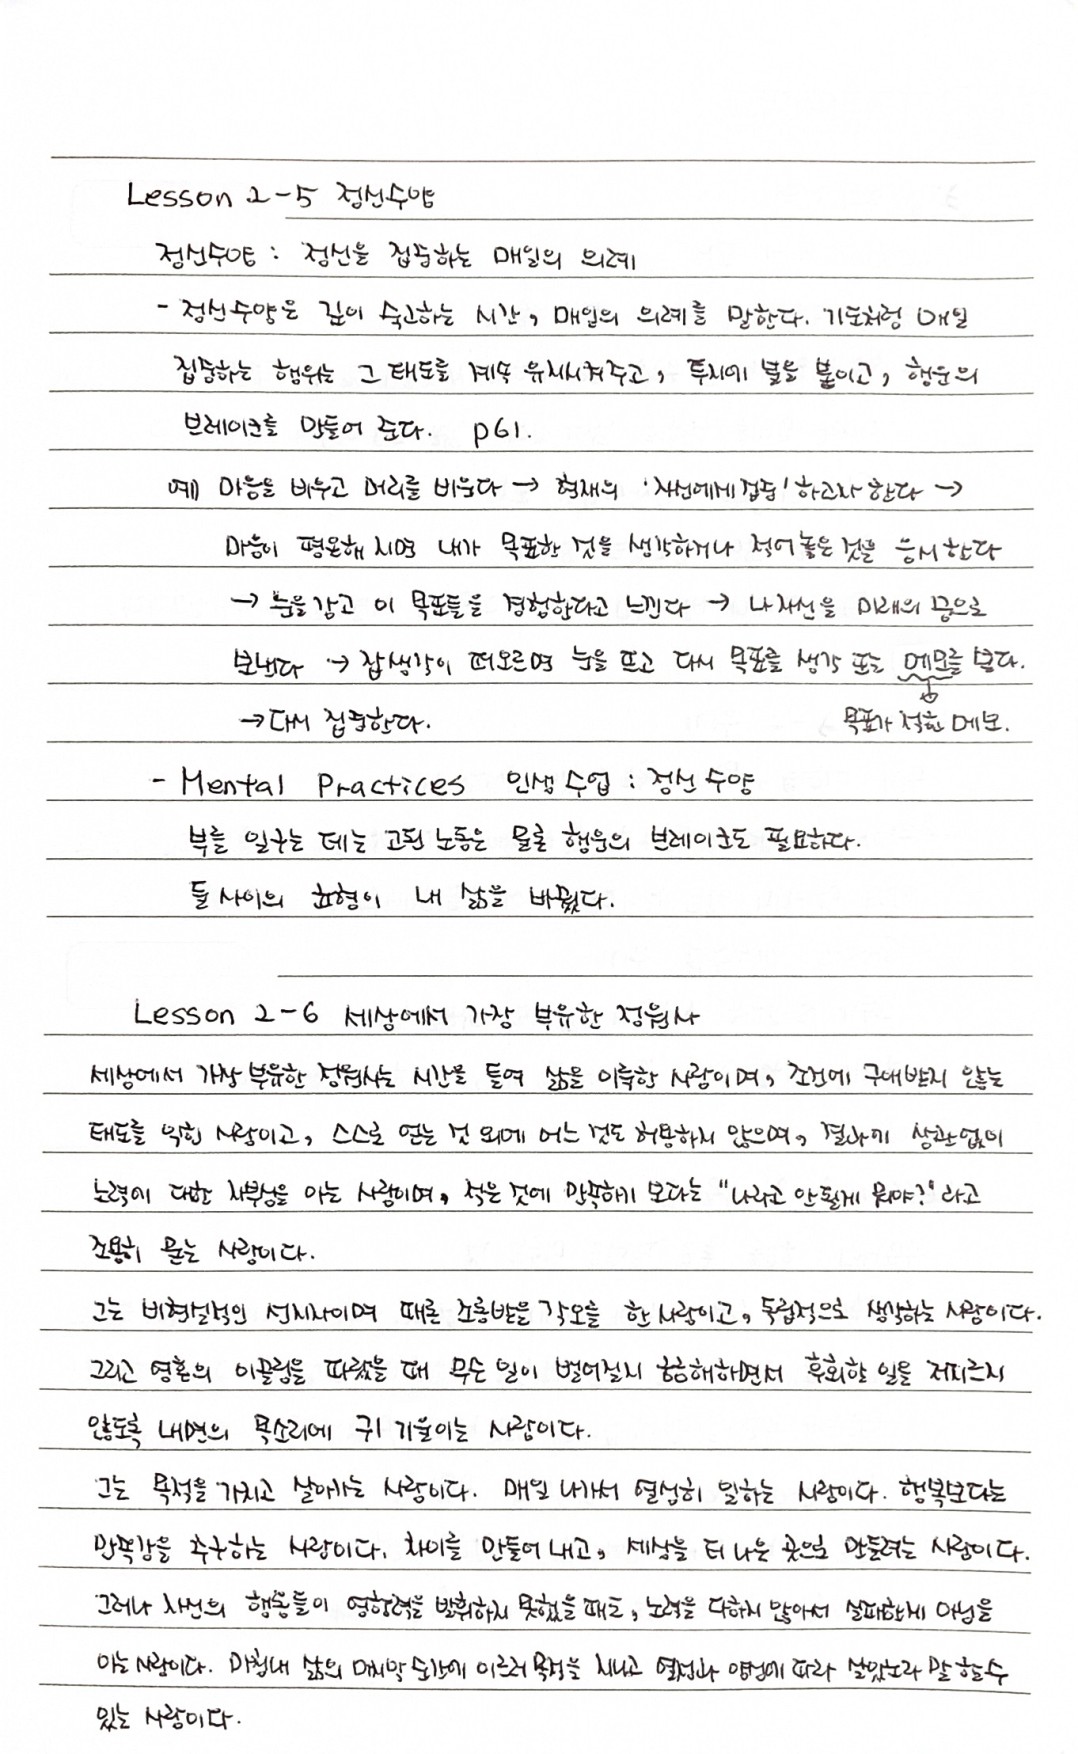 Lesson 2-5 정신수양
정신수양 : 정신을 집중하는 매일의 의례
- 정신수양은 깊이 숙고하는 시간, 매일의 의례를 말한다. 기도처럼 매일
집중하는 행위는 그 태도를 계속 유지시켜주고, 투지에 불을 붙이고, 행운의
브레이크를 만들어 준다. p61.
예) 마음을 비우고 머리를 비운다 → 현재의 '자신에게 집중' 하고자 한다 →
마음이 평온해 지면 내가 목표한 것을 생각하거나 적어 놓은 것을 응시한다
→ 눈을 감고 이 목표들을 경험한다고 느낀다 → 나 자신을 미래의 꿈으로
보낸다 → 잡생각이 떠오르면 눈을 뜨고 다시 목표를 생각 또는 메모를 본다.
→ 다시 집중한다. 목표가 적힌 메모.
- Mental Practices 인생 수업 : 정신 수양
부를 일구는 데는 고된 노동은 물론 행운의 브레이크도 필요하다.
둘 사이의 균형이 내 삶을 바꿨다.
Lesson 2-6 세상에서 가장 부유한 정원사
세상에서 가장 부유한 정원사는 시간을 들여 삶을 이룩한 사람이며, 조건에 구애받지 않는
태도를 익힌 사람이고, 스스로 얻는 것 외에 어느 것도 허용하지 않으며, 결과에 상관없이
노력에 대한 자부심을 아는 사람이며, 적은 것에 만족하기 보다는 "나라고 안될게 뭐야?" 라고
조용히 묻는 사람이다.
그는 비현실적인 선지자이며 때론 조롱받을 각오를 한 사람이고, 독립적으로 생각하는 사람이다.
그리고 영혼의 이끌림을 따랐을 때 무슨 일이 벌어질지 궁금해하면서 후회할 일을 저지르지
않도록 내면의 목소리에 귀 기울이는 사람이다.
그는 목적을 가지고 살아가는 사람이다. 매일 나가서 열심히 일하는 사람이다. 행복보다는
만족감을 추구하는 사람이다. 차이를 만들어 내고, 세상을 더 나은 곳으로 만들려는 사람이다.
그러나 자신의 행동들이 영향력을 발휘하지 못했을 때도, 노력을 다하지 않아서 실패한게 아님을
아는 사람이다. 마침내 삶의 마지막 순간에 이르러 목적을 지니고 열정과 양심에 따라 살았노라 말 할 수
있는 사람이다.